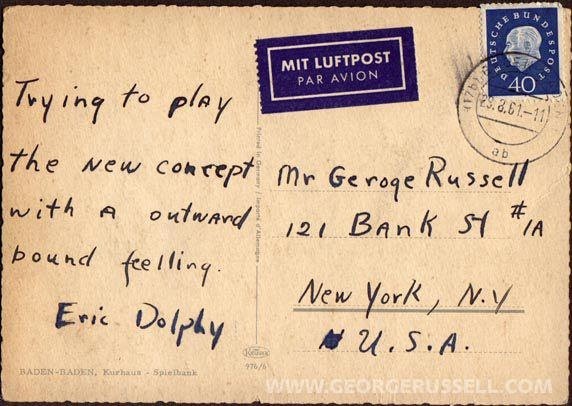 MIT LUFTPOST
PAR AVION
DEUTSCHE BUNDESPOST
40
29.8.61.-11
ab
Trying to play
the new concept
with a outward
bound feelling.
Eric Dolphy
Printed in Germany / Importé d'Allemagne
Mr Geroge Russell
121 Bank St #1A
New York, N.Y
U.S.A.
Krüger
976/6
BADEN-BADEN, Kurhaus - Spielbank
WWW.GEORGERUSSELL.COM